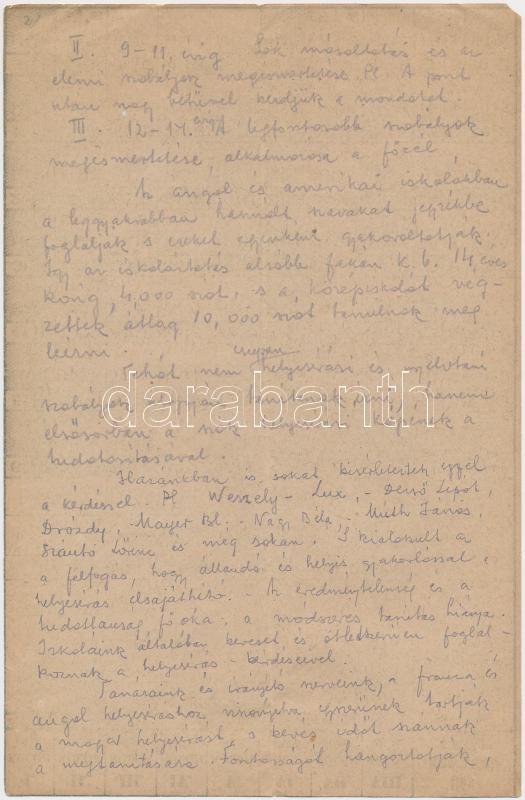 2)
II. 9-11, évig Sok másoltatás és az
elemi szabályok megismertetése. Pl. A pont
után nagy betűvel kezdjük a mondatot.
III. 12-14. évig A legfontosabb szabályok
megismertetése, alkalmazása a főcél
Az angol és amerikai iskolákban
a leggyakrabban használt szavakat jegyzékbe
foglalják s ezeket egyenként gyakoroltatják.
Így az iskoláztatás alsóbb fokán k. b. 14 éves
korig 4,000 szót, s a középiskolát vég-
zettek átlag 10,000 szót tanulnak meg
leírni.
csupán
Tehát nem helyesírási és nyelvtani
szabályok alapján hanem
elsősorban a szók helyesírási képének a
tudatosításával.
Hazánkban is sokat kísérleteztek ezzel
a kérdéssel. Pl. Weszely - Lux, - Dezső Lipót,
Drózdy, Mayer Bl. - Nagy Béla, - Muth János,
Szántó Lőrinc és még sokan. S kialakult a
a felfogás, hogy állandó és helyes gyakorlással a
helyesírás elsajátítható. - Az eredménytelenség és a
tudatlanság fő oka, a módszeres tanítás hiánya.
Iskoláink általában keveset és ötletszerűen foglal-
koznak a helyesírás - kérdéseivel.
Tanáraink és irányító szerveink, a francia és
angol helyesíráshoz viszonyítva, egyszerűnek tartják
a magyar helyesírást, s kevés időt szánnak
a megtanítására. Fontosságát hangoztatják,
darabanth.com